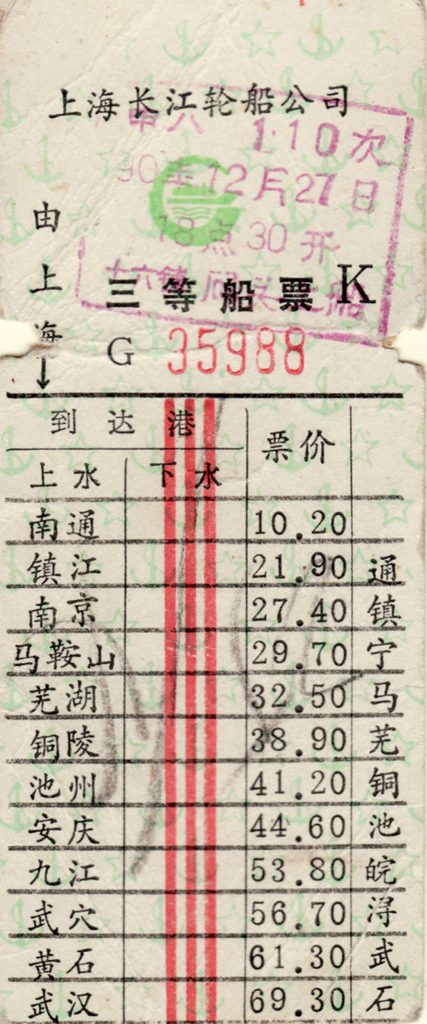 上海长江轮船公司
110次
90年12月27日
18点30开
十六铺
船
由上海
三等船票 K
G 35988
到达港 票价
上水 下水
南通 10.20
镇江 21.90 通
南京 27.40 镇
马鞍山 29.70 宁
芜湖 32.50 马
铜陵 38.90 芜
池州 41.20 铜
安庆 44.60 池
九江 53.80 皖
武穴 56.70 浔
黄石 61.30 武
武汉 69.30 石